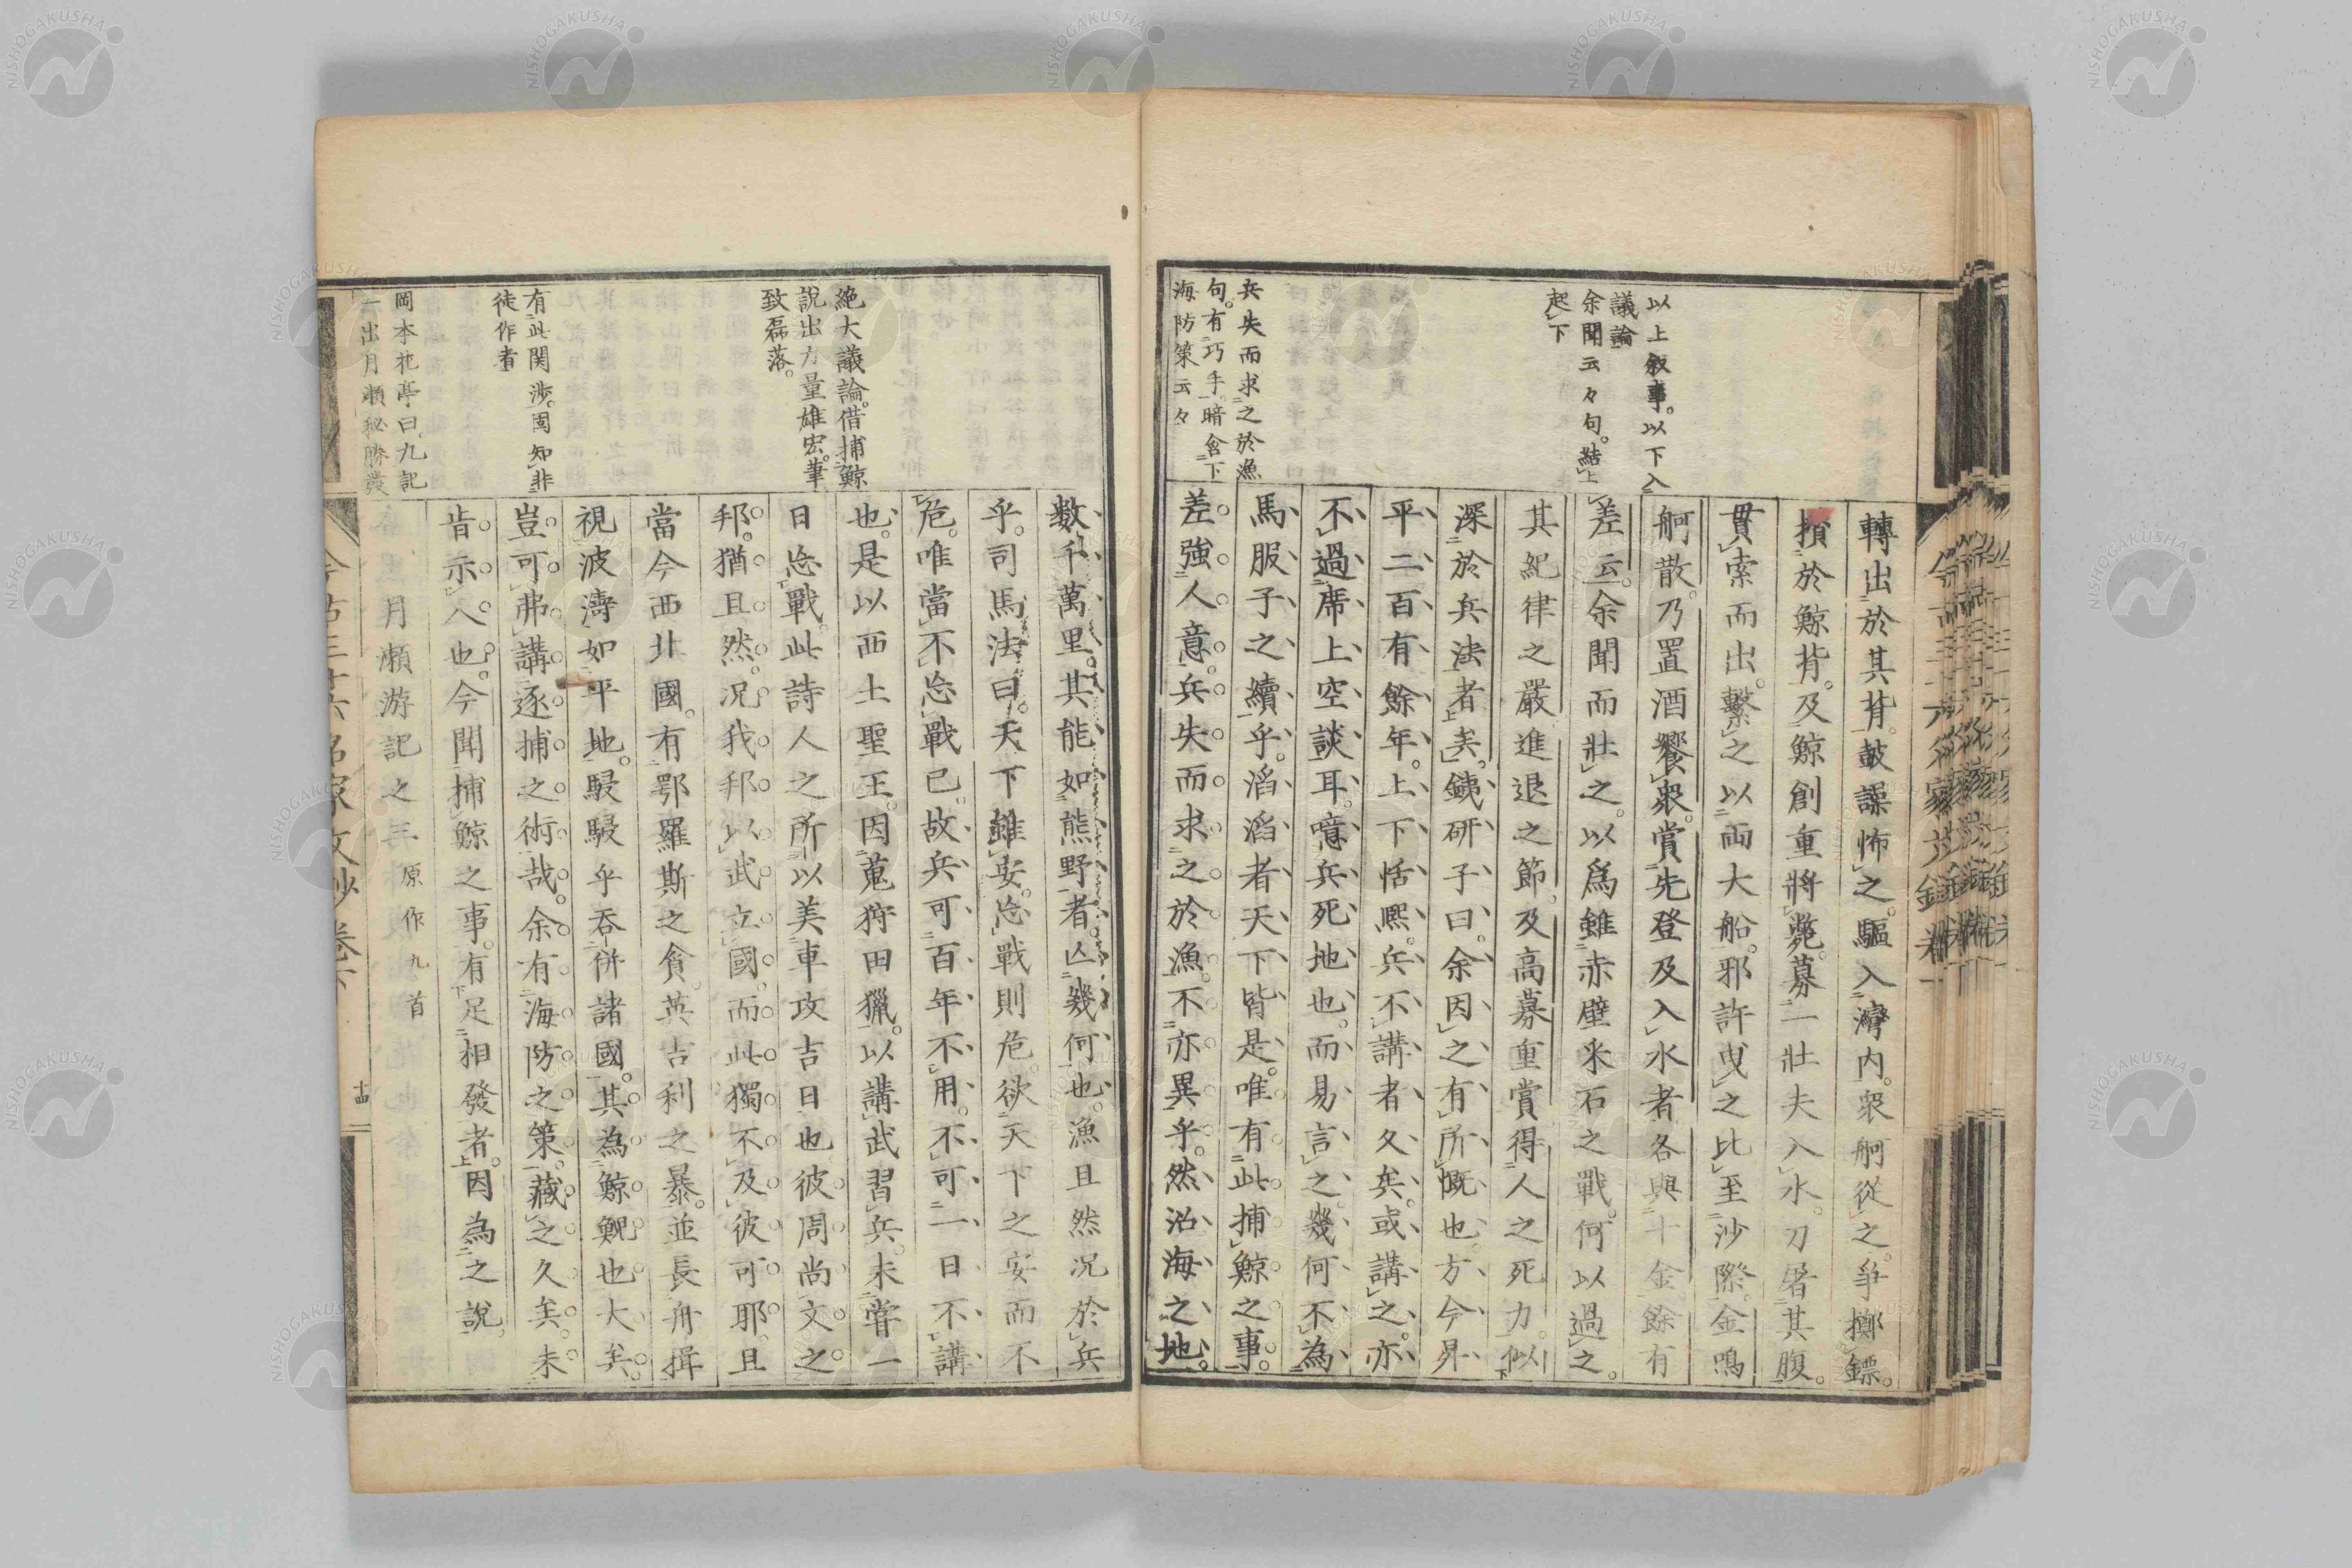 以上敘事。以下入
議論
余聞云々句。結上
起下
兵失而求之於漁
句。有巧手。暗含下
海防策云々
轉出於其背。鼓譟怖之。驅入灣内。衆舸從之。爭擲鏢。
於鯨背。及鯨創重將斃。募一壯夫入水。刀屠其腹。
貫索而出。繫之以両大船。邪許曳之比至沙際。金鳴
舸散。乃置酒饗衆。賞先登及入水者各與十金餘有
差云。余聞而壯之。以爲雖赤壁采石之戰。何以過之。
其紀律之嚴進退之節。及高募重賞得人之死力。似
深於兵法者矣。銕研子曰。余因之有所慨也。方今昇
平二百有餘年。上下恬熙。兵不講者久矣。或講之。亦
不過席上空談耳。噫兵死地也。而易言之。幾何不為
馬服子之續乎。滔滔者天下皆是。唯有此捕鯨之事。
差強人意。兵失而求之於漁。不亦異乎。然沿海之地。
絶大議論。借捕鯨
説出力量雄宏。筆
致磊落。
有此関渉。固知非
徒作者
岡本花亭曰。九記
一出月瀬秘勝發
数千萬里。其能如熊野者。亾幾何也。漁且然況於兵
乎。司馬法曰。天下雖安。忘戰則危。欲天下之安而不
危。唯當不忘戰已。故兵可百年不用。不可一日不講
也。是以西土聖王。因蒐狩田獵。以講武習兵。未嘗一
日忘戰。此詩人之所以美車攻吉日也彼周尚文之
邦。猶且然。況我邦以武立國。而此獨不及彼可耶。且
當今西北國。有鄂羅斯之貪。英吉利之暴。並長舟揖
視波濤如平地。駸駸乎呑併諸國。其為鯨鯢也大矣。
豈可弗講逐捕之術哉。余有海防之策。藏之久矣。未
肯示人也。今聞捕鯨之事。有足相發者。因為之説。
月瀬游記之三 原作九首
今古三十六名家文抄卷六
十四